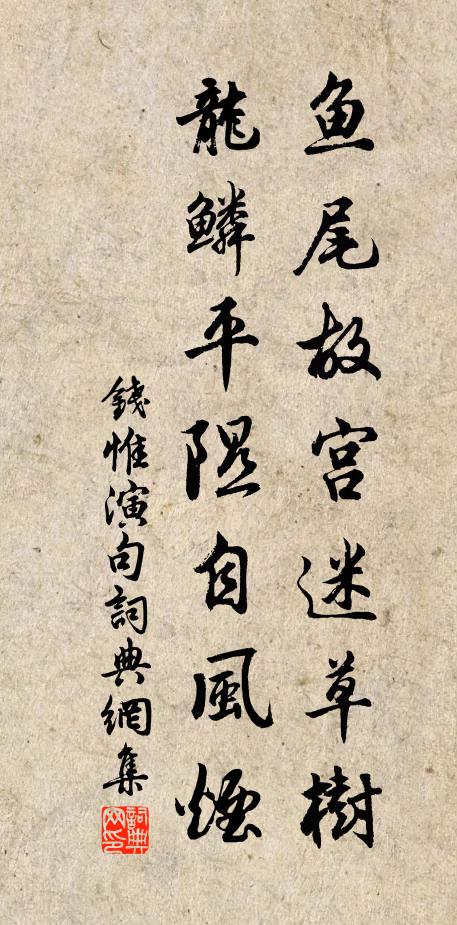 鱼尾故宫迷草樹
龍鱗平隰自風煙
錢惟演句詞典網集
詞典網印